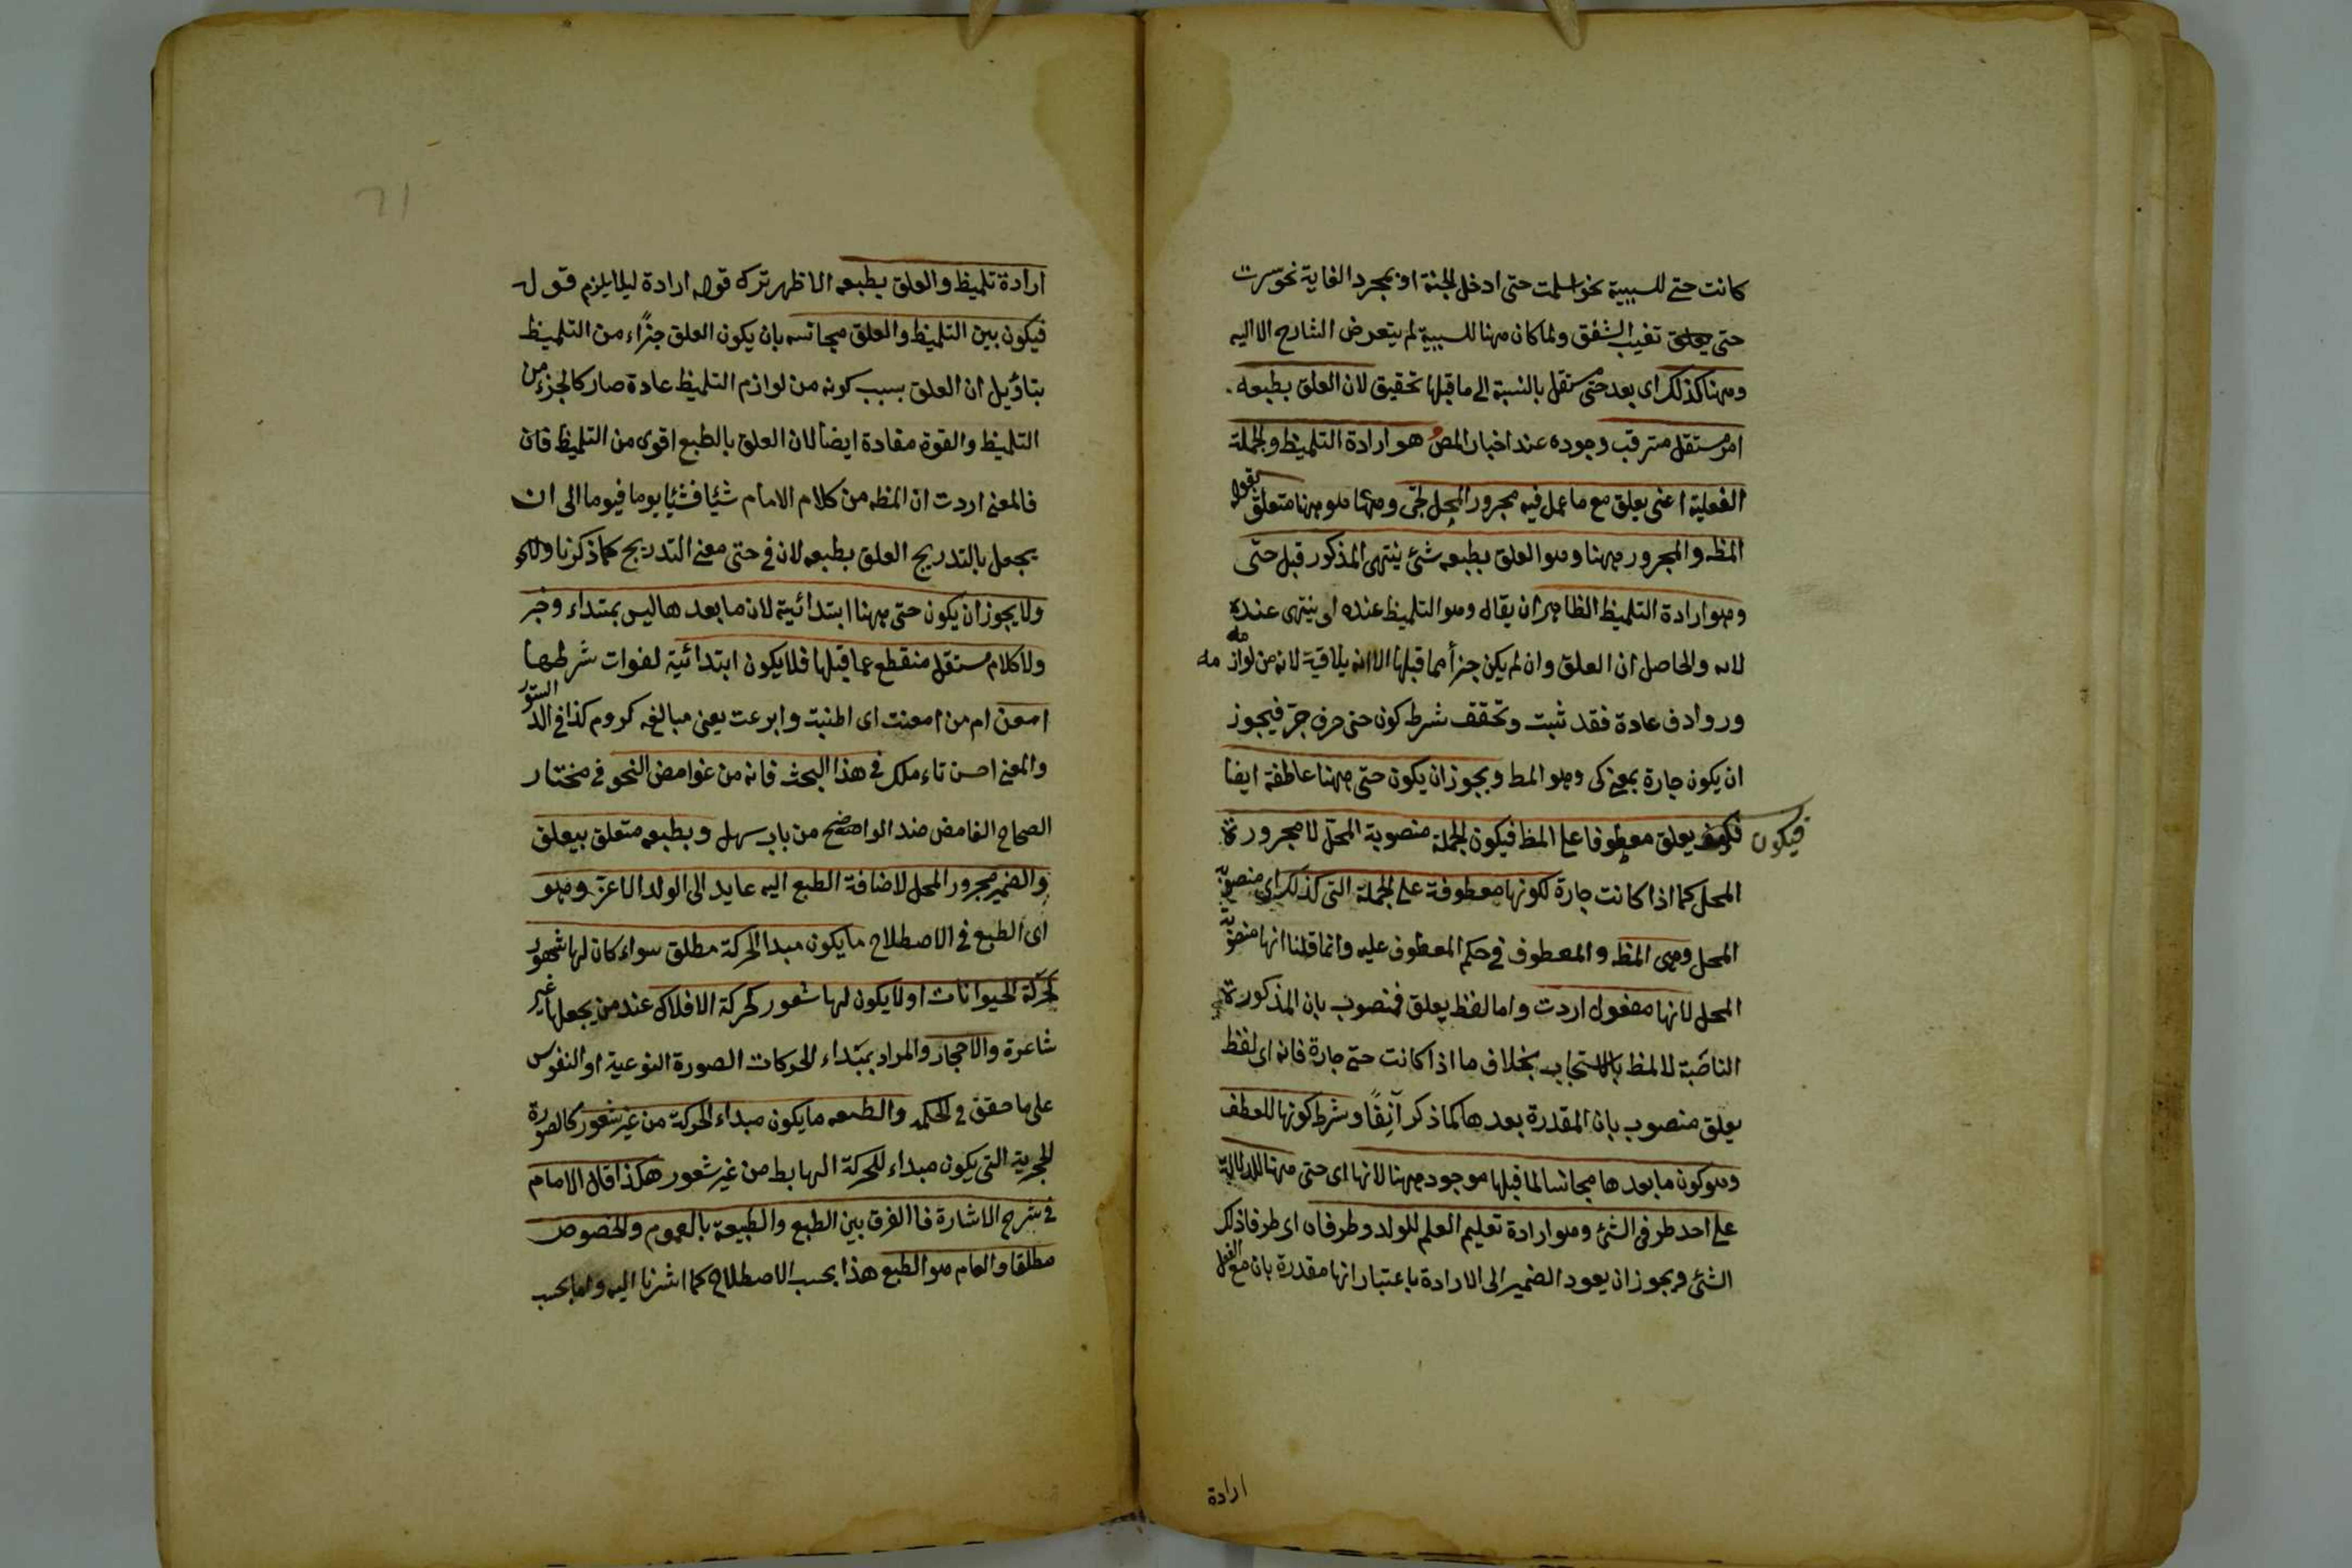 كانت حتى للسببية نحو اسلمت حتى ادخل الجنة او بمجرد الغاية نحو سرت
حتى تغيب الشفق ولما كان ههنا للسببية لم يتعرض الشارح الا اليه
وههنا كذلك اى بعد حتى مستقل بالنسبة الى ما قبلها تحقيق لان العلق بطبعه
امر مستقل مترقب وجوده عند اخبار المص هو ارادة التلميظ والجملة
الفعلية اعنى يعلق مع ما عمل فيه مجرور المحل لحتى وههنا متعلق بقوله
المظ والمجرور ههنا وهو العلق بطبعه شئ ينتهى المذكور قبل حتى
وهو ارادة التلميظ الظاهر ان يقال وهو التلميظ عنده اى ينتهى عنده
والحاصل ان العلق وان لم يكن جزأ مما قبلها الا انه يلاقية لانه من لوازمه
وروادف عادة فقد ثبت وتحقق شرط كون حتى حرف جر فيجوز
ان يكون جارة بمعنى كى وهو المط ويجوز ان يكون حتى ههنا عاطفة ايضا
فيكون يعلق معطوفا على المظ فيكون الجملة منصوبة المحل لا مجرورة
المحل كما اذا كانت جارة لكونها معطوفة على الجملة التى كذلك اى منصوبة
المحل وهى المظ والمعطوف فى حكم المعطوف عليه وانما قلنا انها منصوبة
المحل لانها مفعول اردت واما لفظ يعلق فمنصوب بان المذكورة
الناصبة لالمظ بخلاف ما اذا كانت حتى جارة فانه اى لفظ
يعلق منصوب بان المقدرة بعدها كما ذكر آنفًا وشرط كونها للعطف
وهو كون ما بعدها مجانسا لما قبلها موجود ههنا لانها اى حتى ههنا للدلالة
على احد طرفى الشئ وهو ارادة تعليم العلم للولد وطرفاه اى طرفا ذلك
الشئ ويجوز ان يعود الضمير الى الارادة باعتبار انها مقدرة بان مع الفعل
ارادة
ارادة تلميظ والعلق بطبعه الاظهر ترك قوله ارادة ليلا يلزم قول
فيكون بين التلميظ والعلق مجانسه بان يكون العلق جزاء من التلميظ
بتاؤيل ان العلق بسبب كونه من لوازم التلميظ عادة صار كالجزء من
التلميظ والقوة مفادة ايضا لان العلق بالطبع اقوى من التلميظ فان
فالمعنى اردت ان المظه من كلام الامام شيئا فشيئا يوما فيوما الى ان
يجعل بالتدريج العلق بطبعه لان فى حتى معنى التدريج كما ذكرنا
ولا يجوز ان يكون حتى ههنا ابتدائية لان ما بعدها ليس بمبتداء وخبر
ولا كلام مستقل منقطع عما قبلها فلا يكون ابتدائية لفوات شرطها
امعن امر من امعنت اى اطنبت وابرعت يعنى مبالغه كردم كذا فى الدستور
والمعنى احسن تاءملك فى هذا البحث فانه من غوامض النحو فى مختار
الصحاح الغامض ضد الواضح من باب سهل وبطبعه متعلق بيعلق
والضمير مجرور المحل لاضافة الطبع اليه عايد الى الولد الاعز وهو
اى الطبع فى الاصطلاح ما يكون مبدا الحركة مطلق سواء كان لها شعور
كحركة الحيوانات او لا يكون لها شعور كحركة الافلاك عند من يجعلها غير
شاعرة والاحجار والمراد بمبتداء الحركات الصورة النوعية او النفوس
على ما حقق فى الحكمه والطبعه ما يكون مبداء الحركة من غير شعور كالصورة
الحجرية التى يكون مبداء للحركة الهابط من غير شعور هكذا قال الامام
فى شرح الاشارة فالفرق بين الطبع والطبيعة بالعموم والخصوص
مطلقا والعام هو الطبع هذا بحسب الاصطلاح كما اشرنا اليه واما بحسب